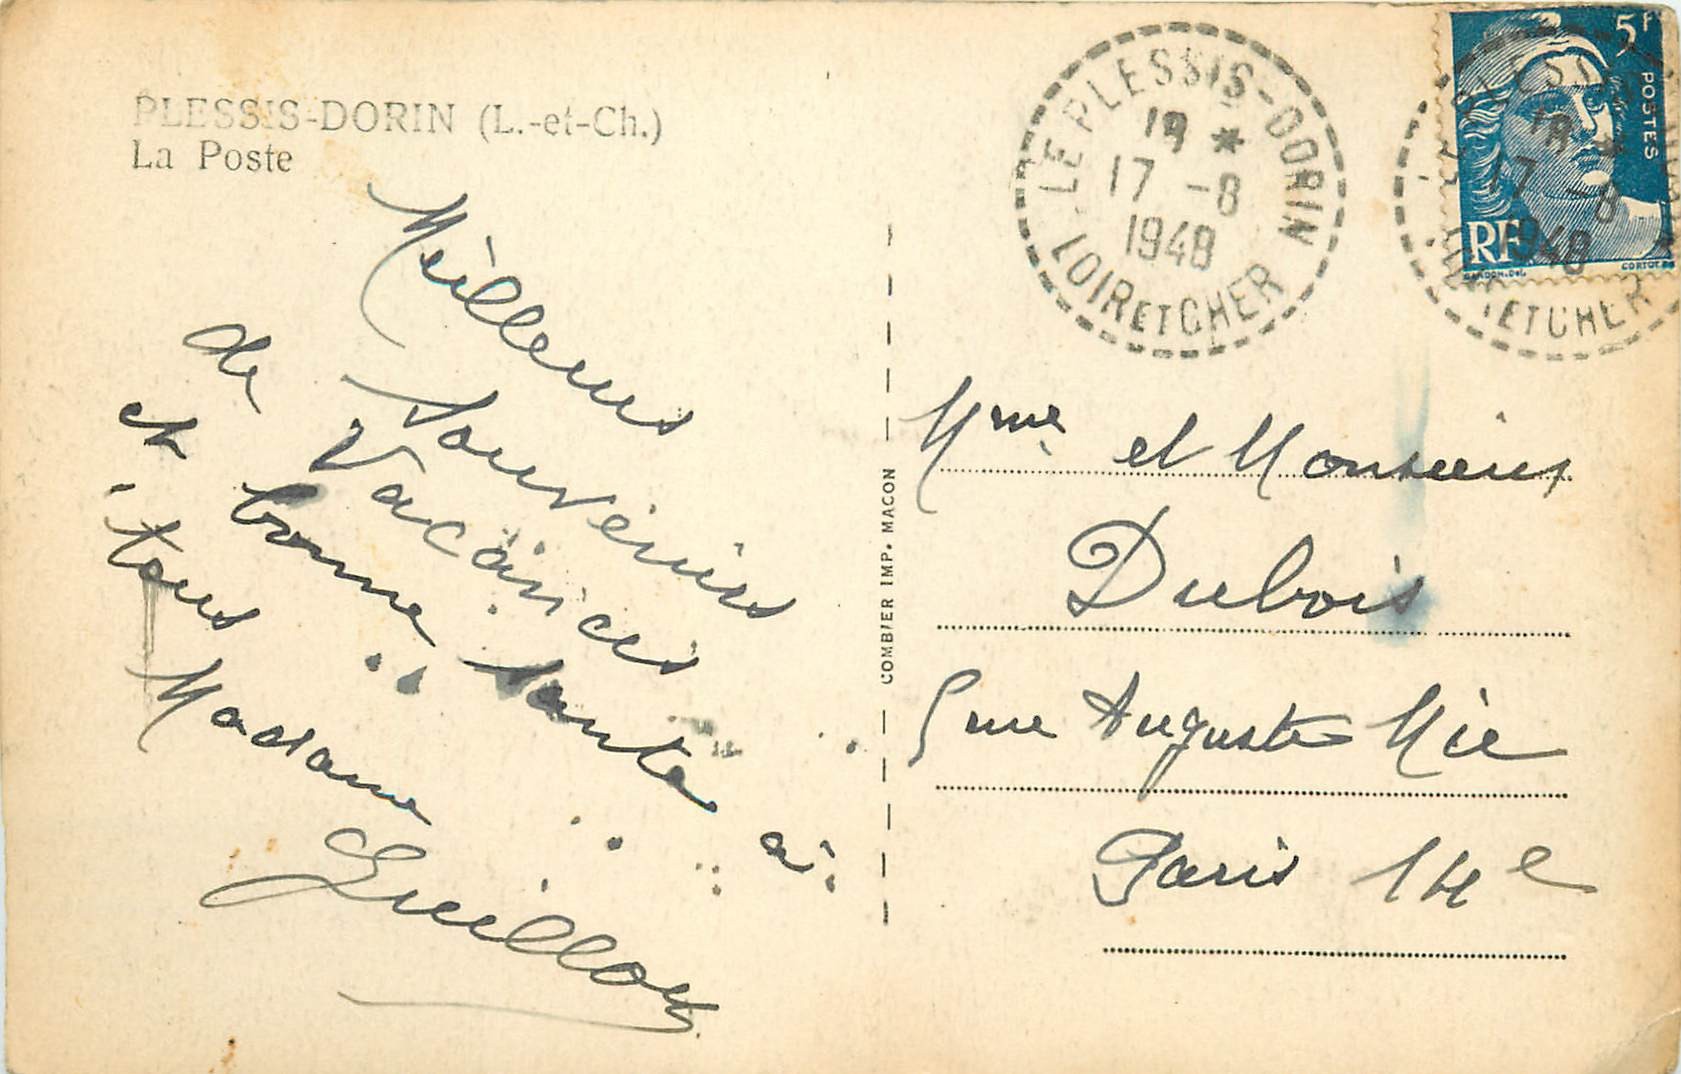 PLESSIS-DORIN (L.-et-Ch.)
La Poste
Meilleurs
de Souvenirs
Vacances
et bonne santé à
tous
Madame
Guillou
COMBIER IMP. MACON
LE PLESSIS-DORIN
18 *
17 -8
1948
LOIR ET CHER
5F
POSTES
RF
GANDON.DEL
CORTOT.SC
18 *
17 -8
1948
ET CHER
Mme et Monsieur
Dubois
5 rue Auguste Mie
Paris 14e